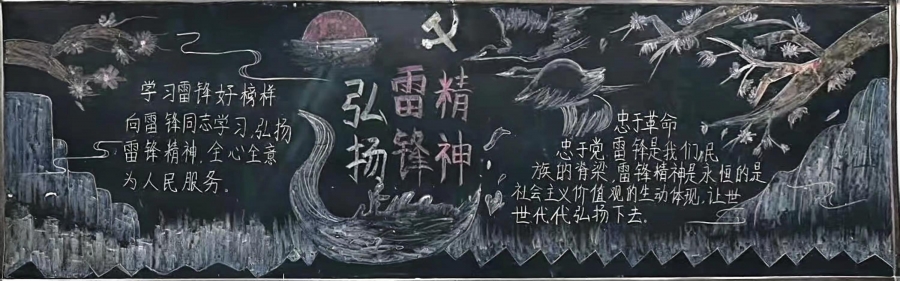 学习雷锋好榜样
向雷锋同志学习,弘扬
雷锋精神,全心全意
为人民服务。
弘扬
雷锋
精神
忠于革命
忠于党,雷锋是我们民
族的脊梁,雷锋精神是永恒的是
社会主义价值观的生动体现,让世
世代代弘扬下去.